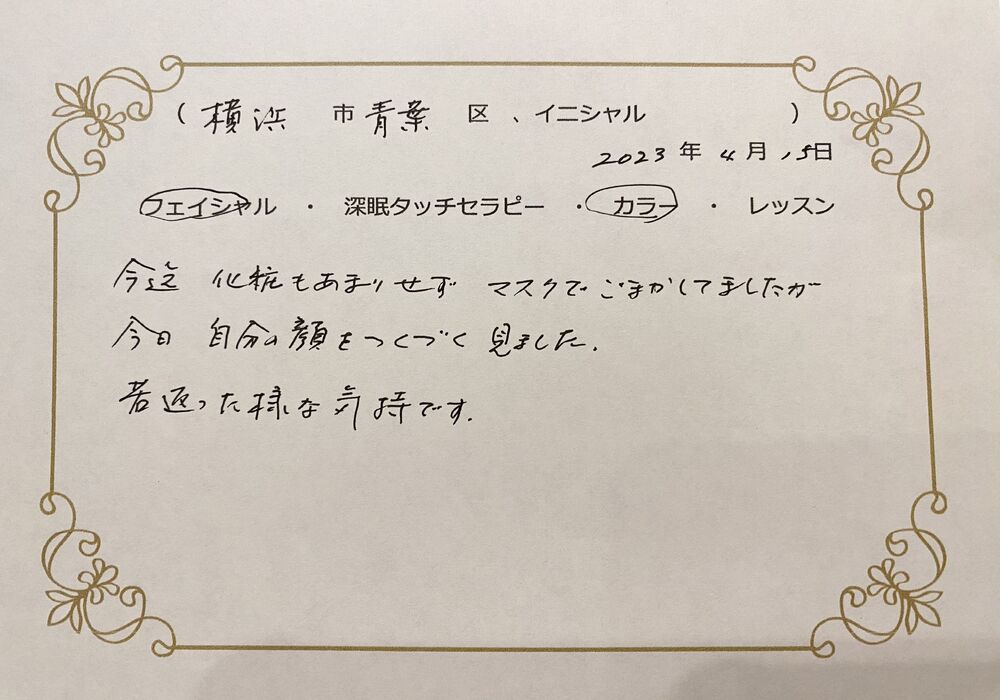 （ 横浜 市 青葉 区 、イニシャル ）
2023 年 4 月 15日
フェイシャル ・ 深眠タッチセラピー ・ カラー ・ レッスン
今迄 化粧もあまりせず マスクでごまかしてましたが
今日 自分の顔をつくづく見ました.
若返った様な気持です.